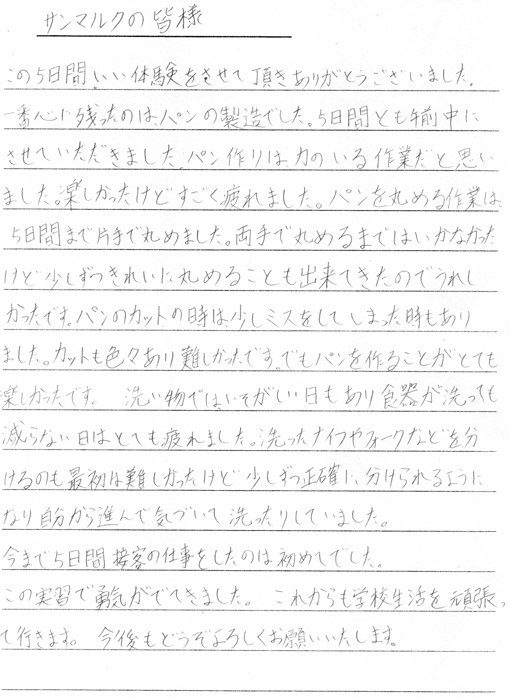 サンマルクの皆様
この5日間、いい体験をさせて頂きありがとうございました。
一番心に残ったのは、パンの製造でした。5日間とも午前中に
させていただきました。パン作りは、力のいる作業だと思い
ました。楽しかったけどすごく疲れました。パンを丸める作業は、
5日間まで片手で丸めました。両手で丸めるまではいかなかった
けど少しずつきれいに丸めることも出来てきたのでうれし
かったです。パンのカットの時は、少しミスをしてしまった時もあり
ました。カットも色々あり難しかったです。でもパンを作ることがとても
楽しかったです。 洗い物では、いそがしい日もあり食器が洗っても
減らない日はとても疲れました。洗ったナイフやフォークなどを分
けるのも最初は難しかったけど少しずつ正確に、分けられるように
なり自分から進んで気づいて洗ったりしていました。
今まで5日間接客の仕事をしたのは初めてでした。
この実習で勇気がでてきました。 これからも学校生活を頑張っ
て行きます。 今後もどうぞよろしくお願いいたします。